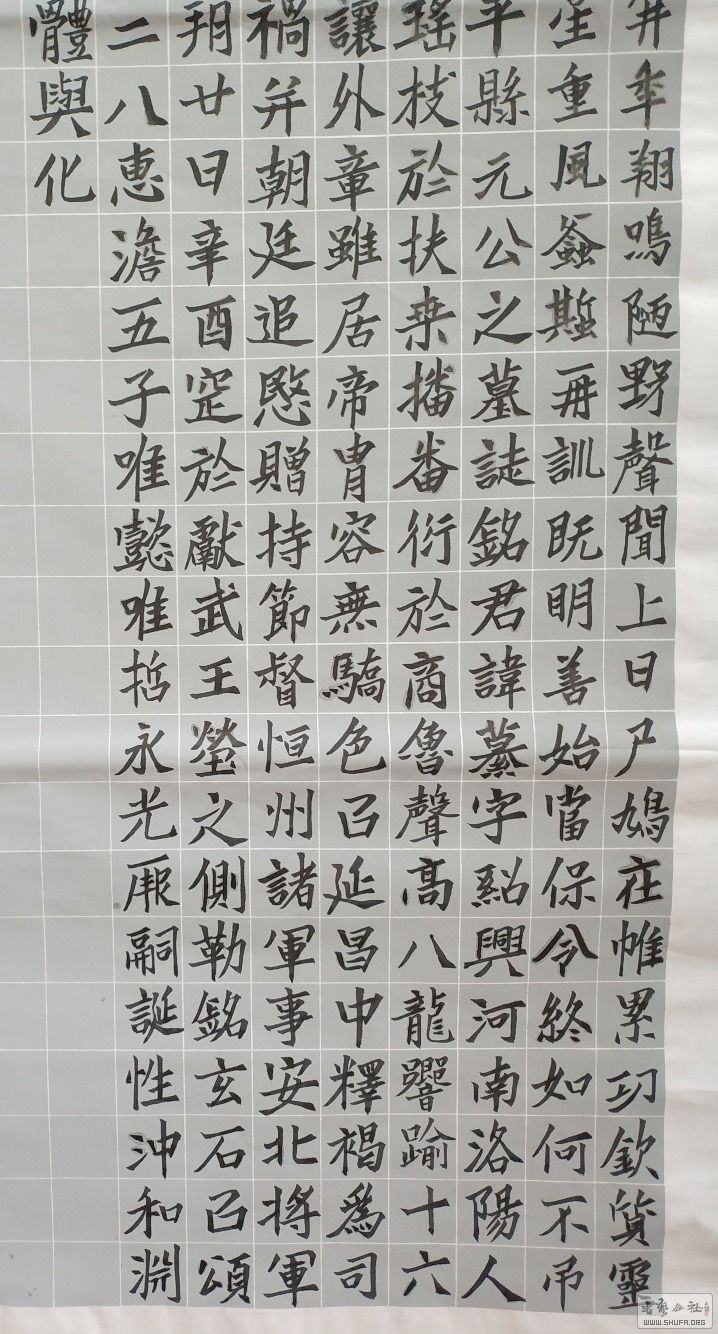 年翔鳴陋野聲聞上日尸鳩在帷累功欽質靈
星重風螽蟴再訓既明善始當保令終如何不弔
平縣元公之墓誌銘君諱纂字紹興河南洛陽人
瑤枝於扶桒播番衍於商魯聲高八龍響踰十六
讓外章雖居帝胄容無驕色㠯延昌中釋褐爲司
禍并朝廷追愍贈持節督恒州諸軍事安北將軍
朔廿日辛酉窆於獻武王塋之側勒銘玄石㠯頌
二八惠澹五子唯懿唯哲永光厥嗣誕性沖和淵
體與化
WWW.SHUFA.ORG